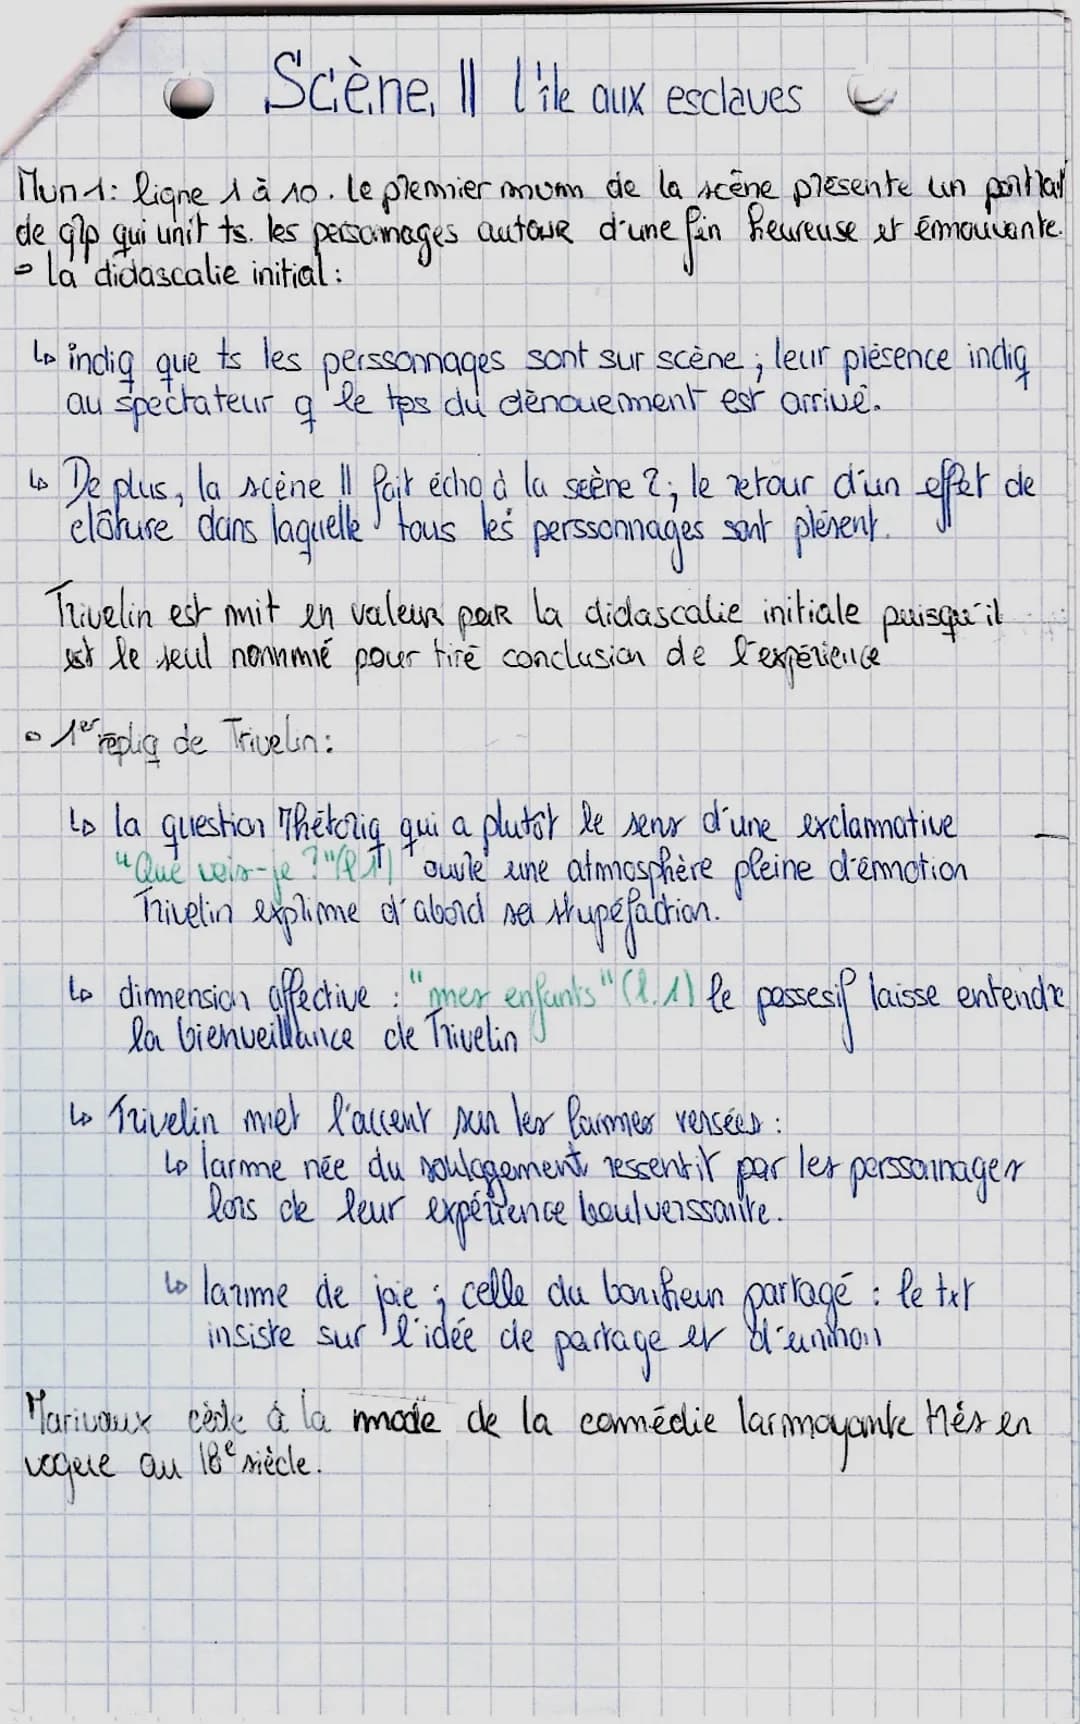 Scène 11 l'île aux esclaves
Mvm 1: ligne 1 à 10. Le premier mvm de la scène présente un portrait
de grp qui unit ts. les personnages autour d'une fin heureuse et émmouvante.
la didascalie initial :
↳ indiq que ts les perssonnages sont sur scène ; leur présence indiq
au spectateur q le tps du dénouement est arrivé.
↳ De plus, la scène 11 fait écho à la scène 2 ; le retour d'un effet de
clôture dans laquelle tous les perssonnages sont présent.
Trivelin est mit en valeur par la didascalie initiale puisqu'il
est le seul nommé pour tiré conclusion de l'expérience
1er répliq de Trivelin :
↳ la question rhétoriq qui a plutôt le sens d'une exclamative
"Que vois-je ?" (l.1) ouvre une atmosphère pleine d'émotion
Trivelin exprime d'abord sa stupéfaction.
↳ dimension affective : "mes enfants" (l.1) le possesif laisse entendre
la bienveillance de Trivelin
↳ Trivelin met l'accent sur les larmes versées :
↳ larme née du soulagement ressentit par les perssonnages
lors de leur expérience boulverssante.
↳ larme de joie ; celle du bonheur partagé : le txt
insiste sur l'idée de partage et d'uninon
Marivaux cède à la mode de la comédie larmoyante très en
vogue au 18e siècle.